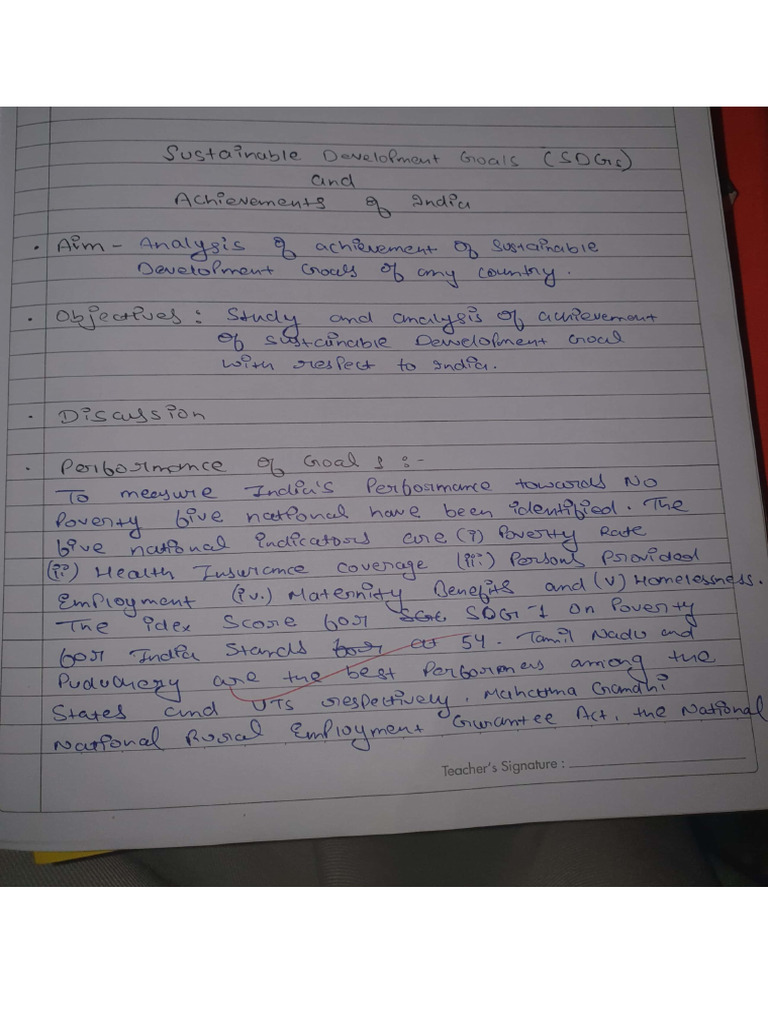 Sustainable Development Goals (SDGs)
and
Achievements of India
• Aim - Analysis of achievement of sustainable
Development Goals of any country.
• Objectives : Study and analysis of achievement
of sustainable Development Goal
with respect to India.
• Discussion
• Performance of Goal s :-
To measure India's Performance towards No
Poverty five national have been identified. The
five national indicators are (i) Poverty Rate
(ii) Health Insurance coverage (iii) Persons Provided
Employment (iv.) Maternity Benefits and (v) Homelessness.
The idex Score for SDG-1 on Poverty
for India Stands at 54. Tamil Nadu and
Puducherry are the best Performers among the
States and UTs respectively. Mahatma Gandhi
National Rural Employment Gurantee Act, the National
Teacher's Signature :